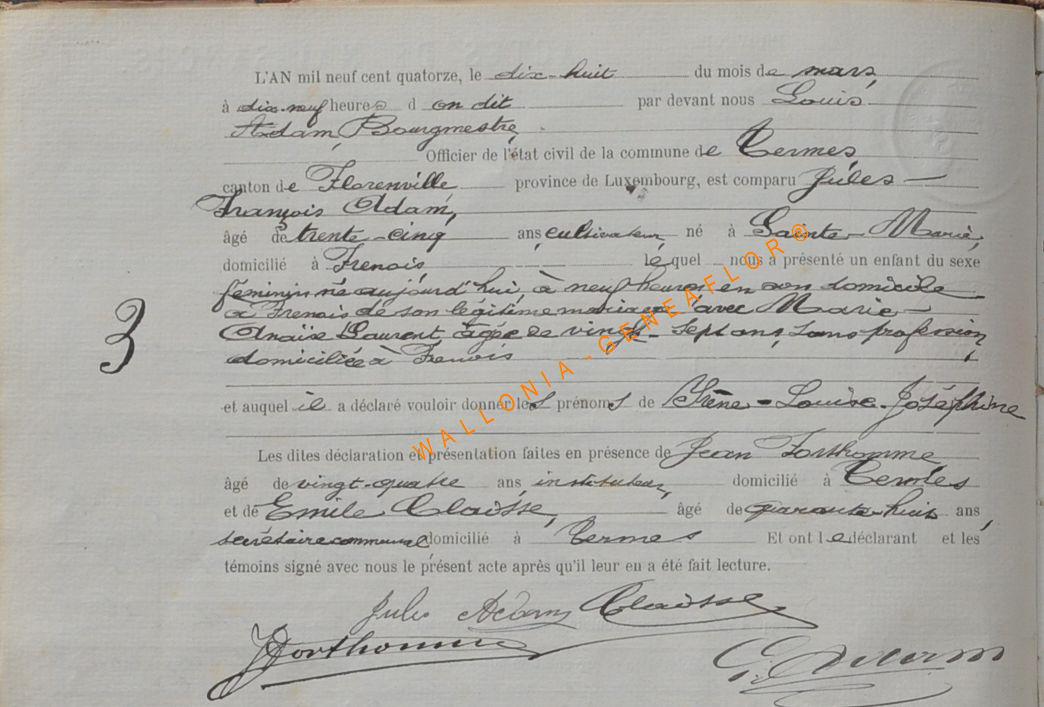 L'AN mil neuf cent quatorze, le dix-huit du mois de mars,
à dix-neuf heures d on dit par devant nous Louis
Adam, Bourgmestre,
Officier de l'état civil de la commune de Termes,
canton de Florenville province de Luxembourg, est comparu Jules
François Adam,
âgé de trente-cinq ans, cultivateur, né à Sainte-Marie,
domicilié à Frenois, lequel nous a présenté un enfant du sexe
féminin né aujourd'hui, à neuf heures en son domicile
à Frenois de son légitime mariage avec Marie-
Anaïse Laurent âgée de vingt-sept ans, sans profession,
domiciliée à Frenois
3
et auquel il a déclaré vouloir donner les prénoms de Irène-Louise-Joséphine
Les dites déclaration et présentation faites en présence de Jean Forthomme
âgé de vingt-quatre ans, instituteur, domicilié à Termes
et de Emile Claisse, âgé de quarante-huit ans,
secrétaire communal domicilié à Termes Et ont le déclarant et les
témoins signé avec nous le présent acte après qu'il leur en a été fait lecture.
Jules Adam Claisse
JForthomme
Adam
WALLONIA-GENEAFLOR®